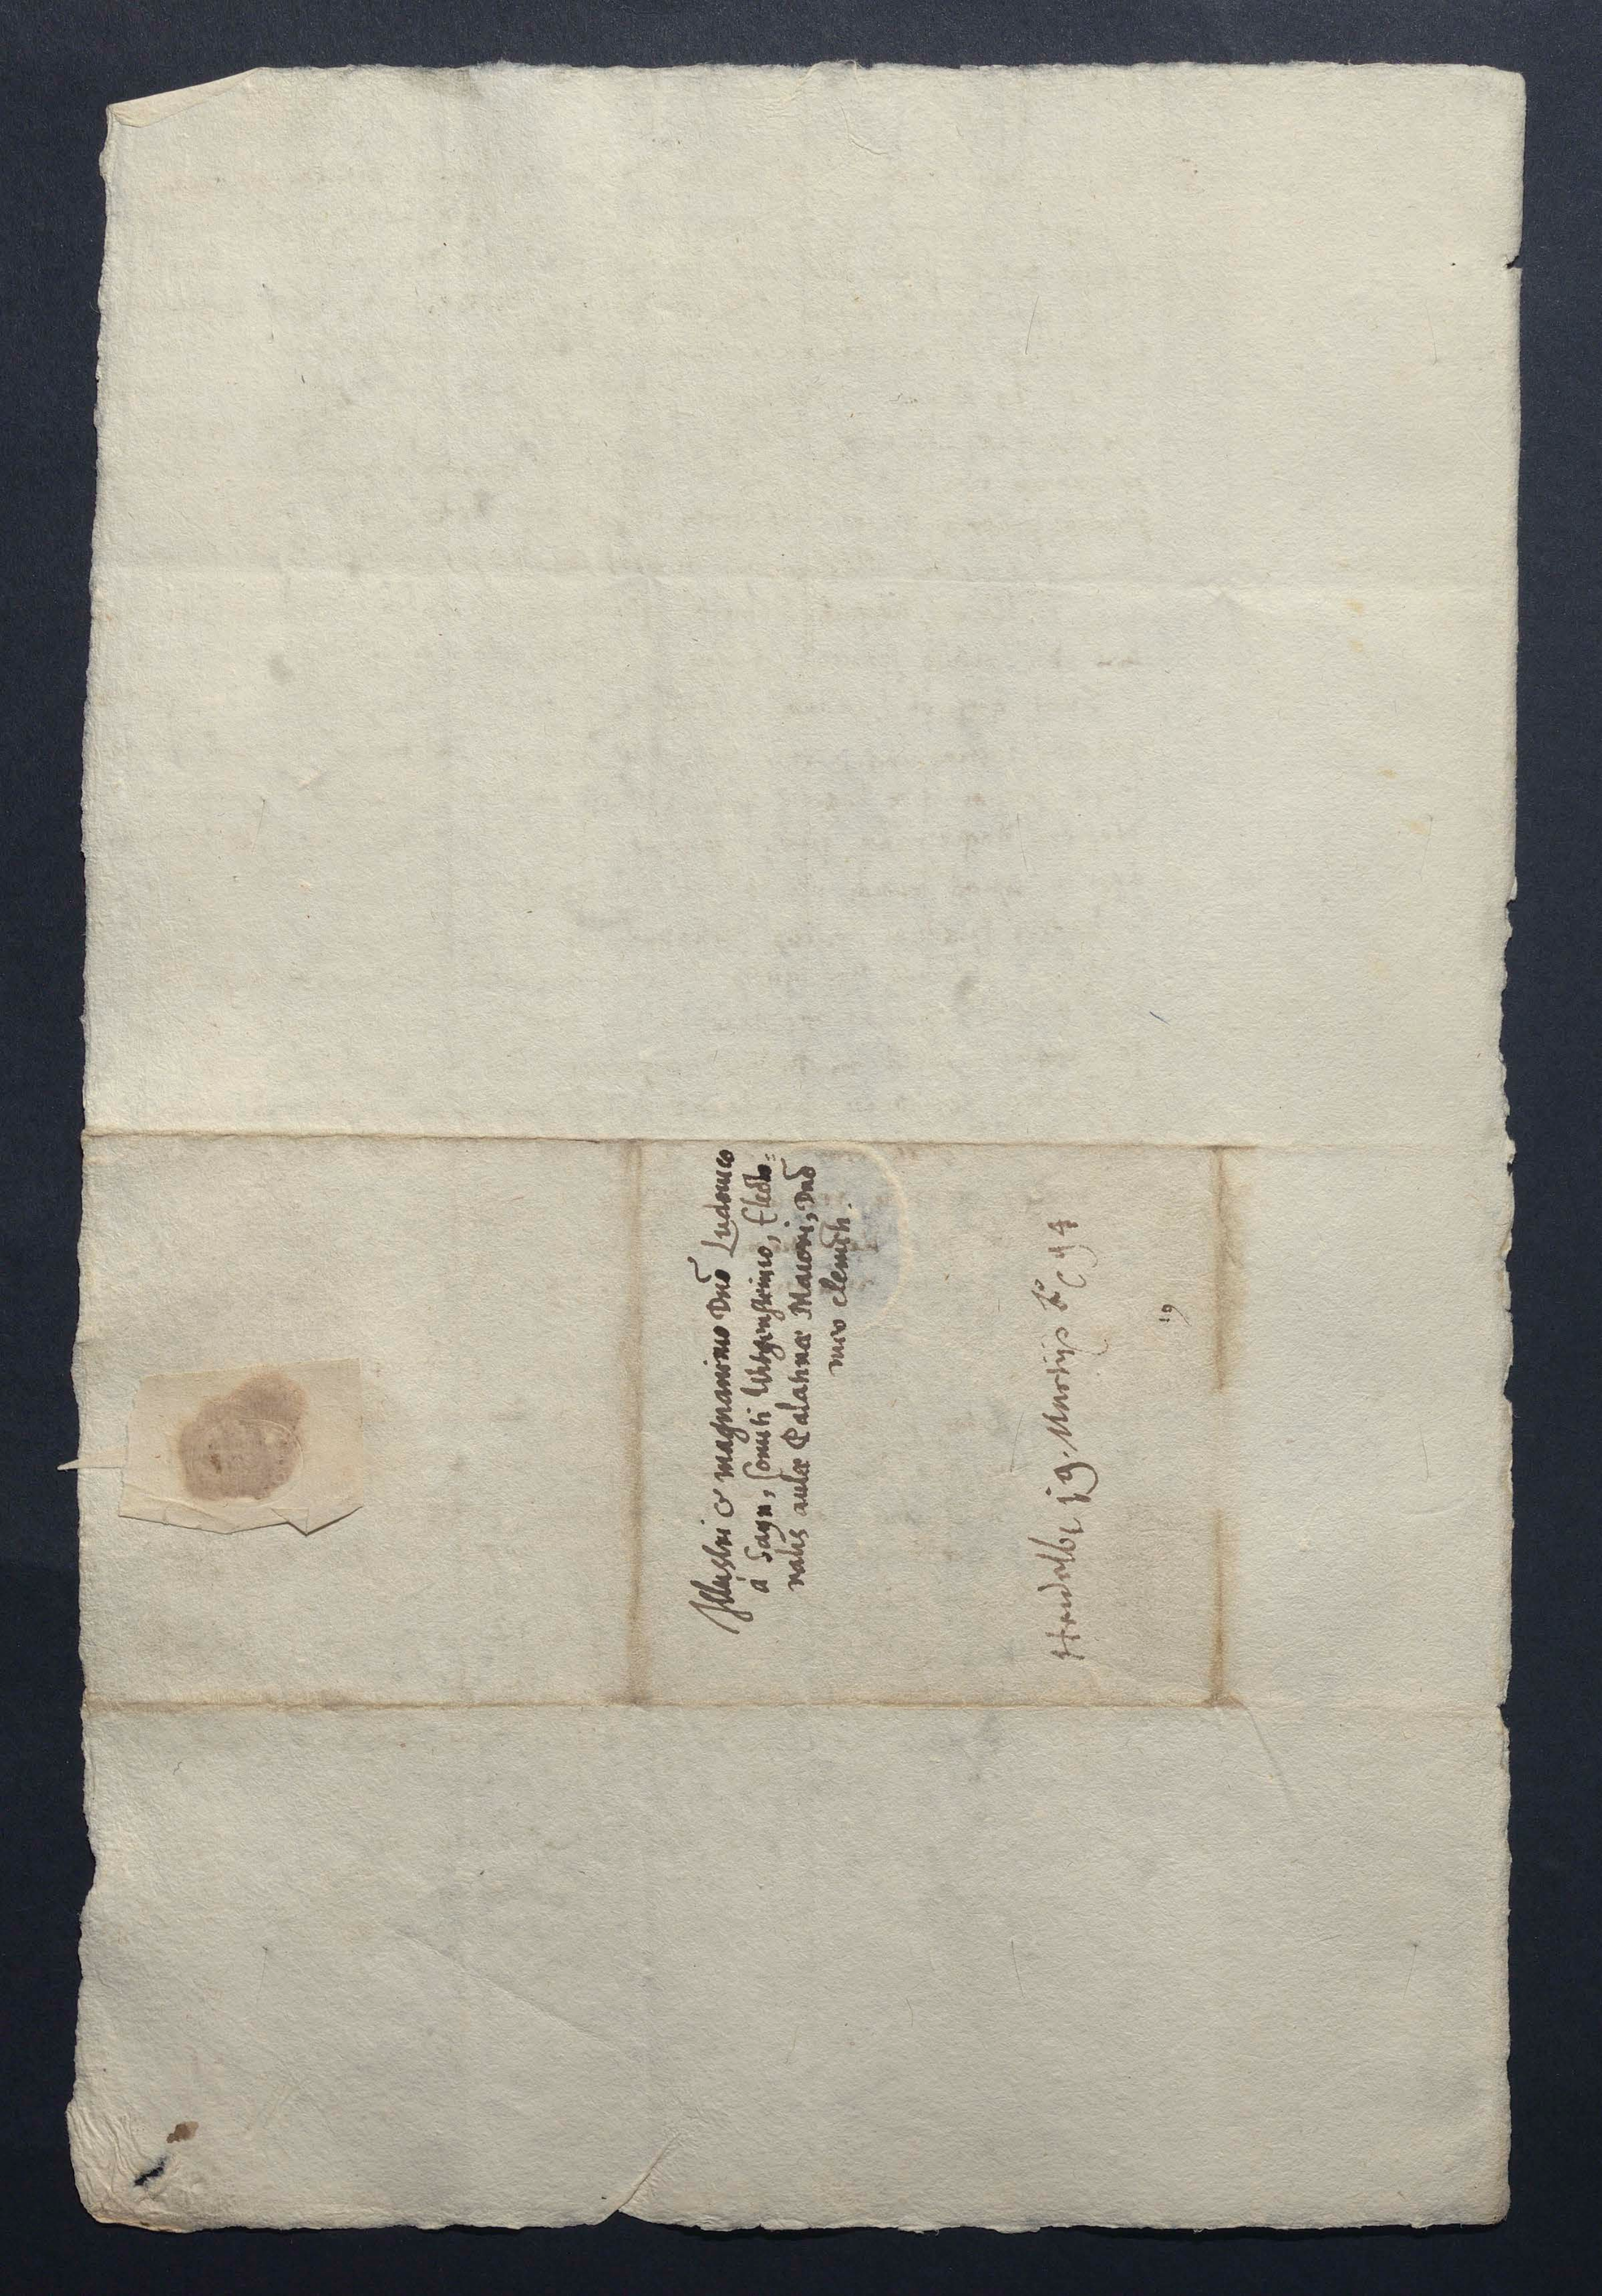 Illustri & magnanimo Dnō Ludouico
à Sayn, Comiti Witgensteinio, Electo=
ralis aulæ Palatinæ Maiori, Dnō
meo clemēti.
Heidelbr 19. Martijs Ao 74
19